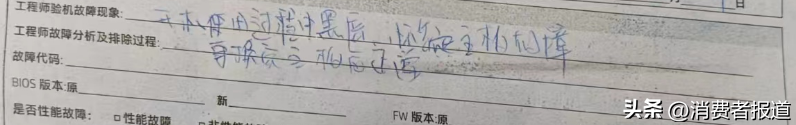 工程师验机故障现象: 开机使用过程中黑屏,怀疑主板故障
工程师故障分析及排除过程: 更换主板后正常
故障代码:
BIOS 版本:原 新
FW 版本:原
是否性能故障: □性能故障
头条 @消费者报道